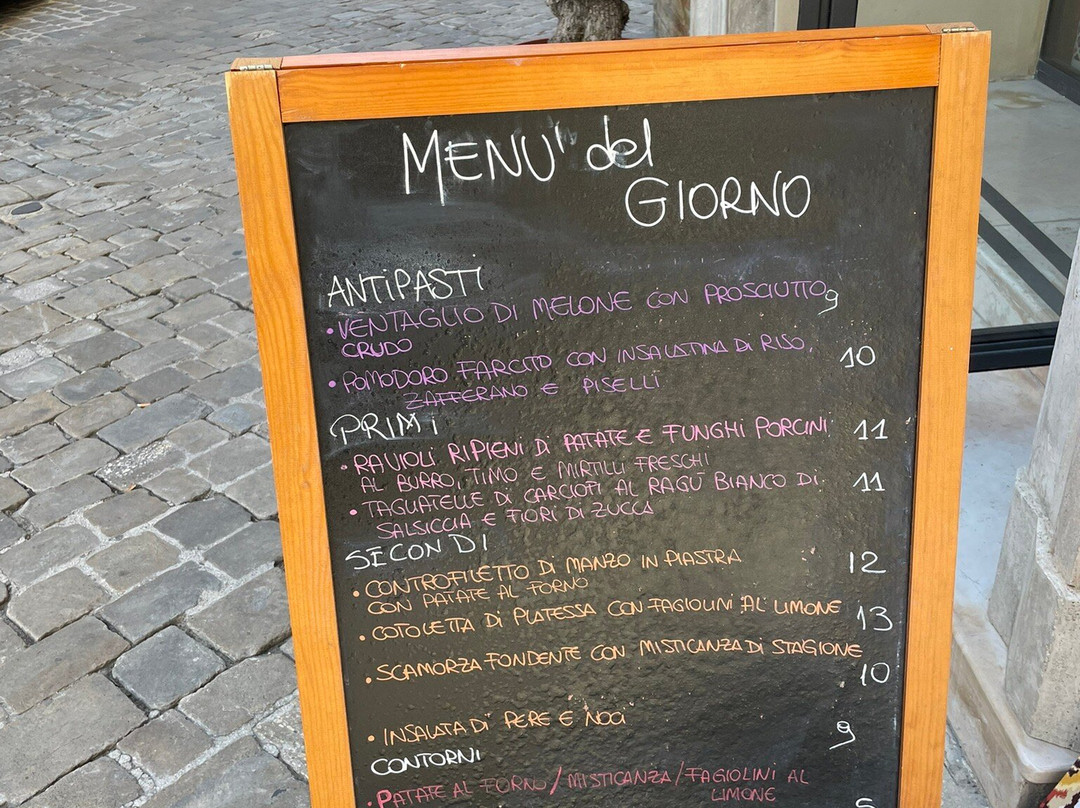 MENU' del
GIORNO
ANTIPASTI
• VENTAGLIO DI MELONE CON PROSCIUTTO 9
CRUDO
• POMODORO FARCITO CON INSALATINA DI RISO, 10
ZAFFERANO E PISELLI
PRIMI
• RAVIOLI RIPIENI DI PATATE E FUNGHI PORCINI 11
AL BURRO, TIMO E MIRTILLI FRESCHI
• TAGLIATELLE DI CARCIOFI AL RAGÙ BIANCO DI 11
SALSICCIA E FIORI DI ZUCCA
SECONDI
• CONTROFILETTO DI MANZO IN PIASTRA 12
CON PATATE AL FORNO
• COTOLETTA DI PLATESSA CON FAGIOLINI AL LIMONE 13
• SCAMORZA FONDENTE CON MISTICANZA DI STAGIONE
10
• INSALATA DI PERE E NOCI 9
CONTORNI
• PATATE AL FORNO/MISTICANZA/FAGIOLINI AL
LIMONE 5